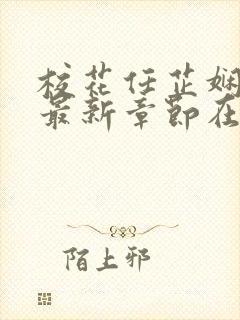 校花任芷娴
最新章节在
陌上邪